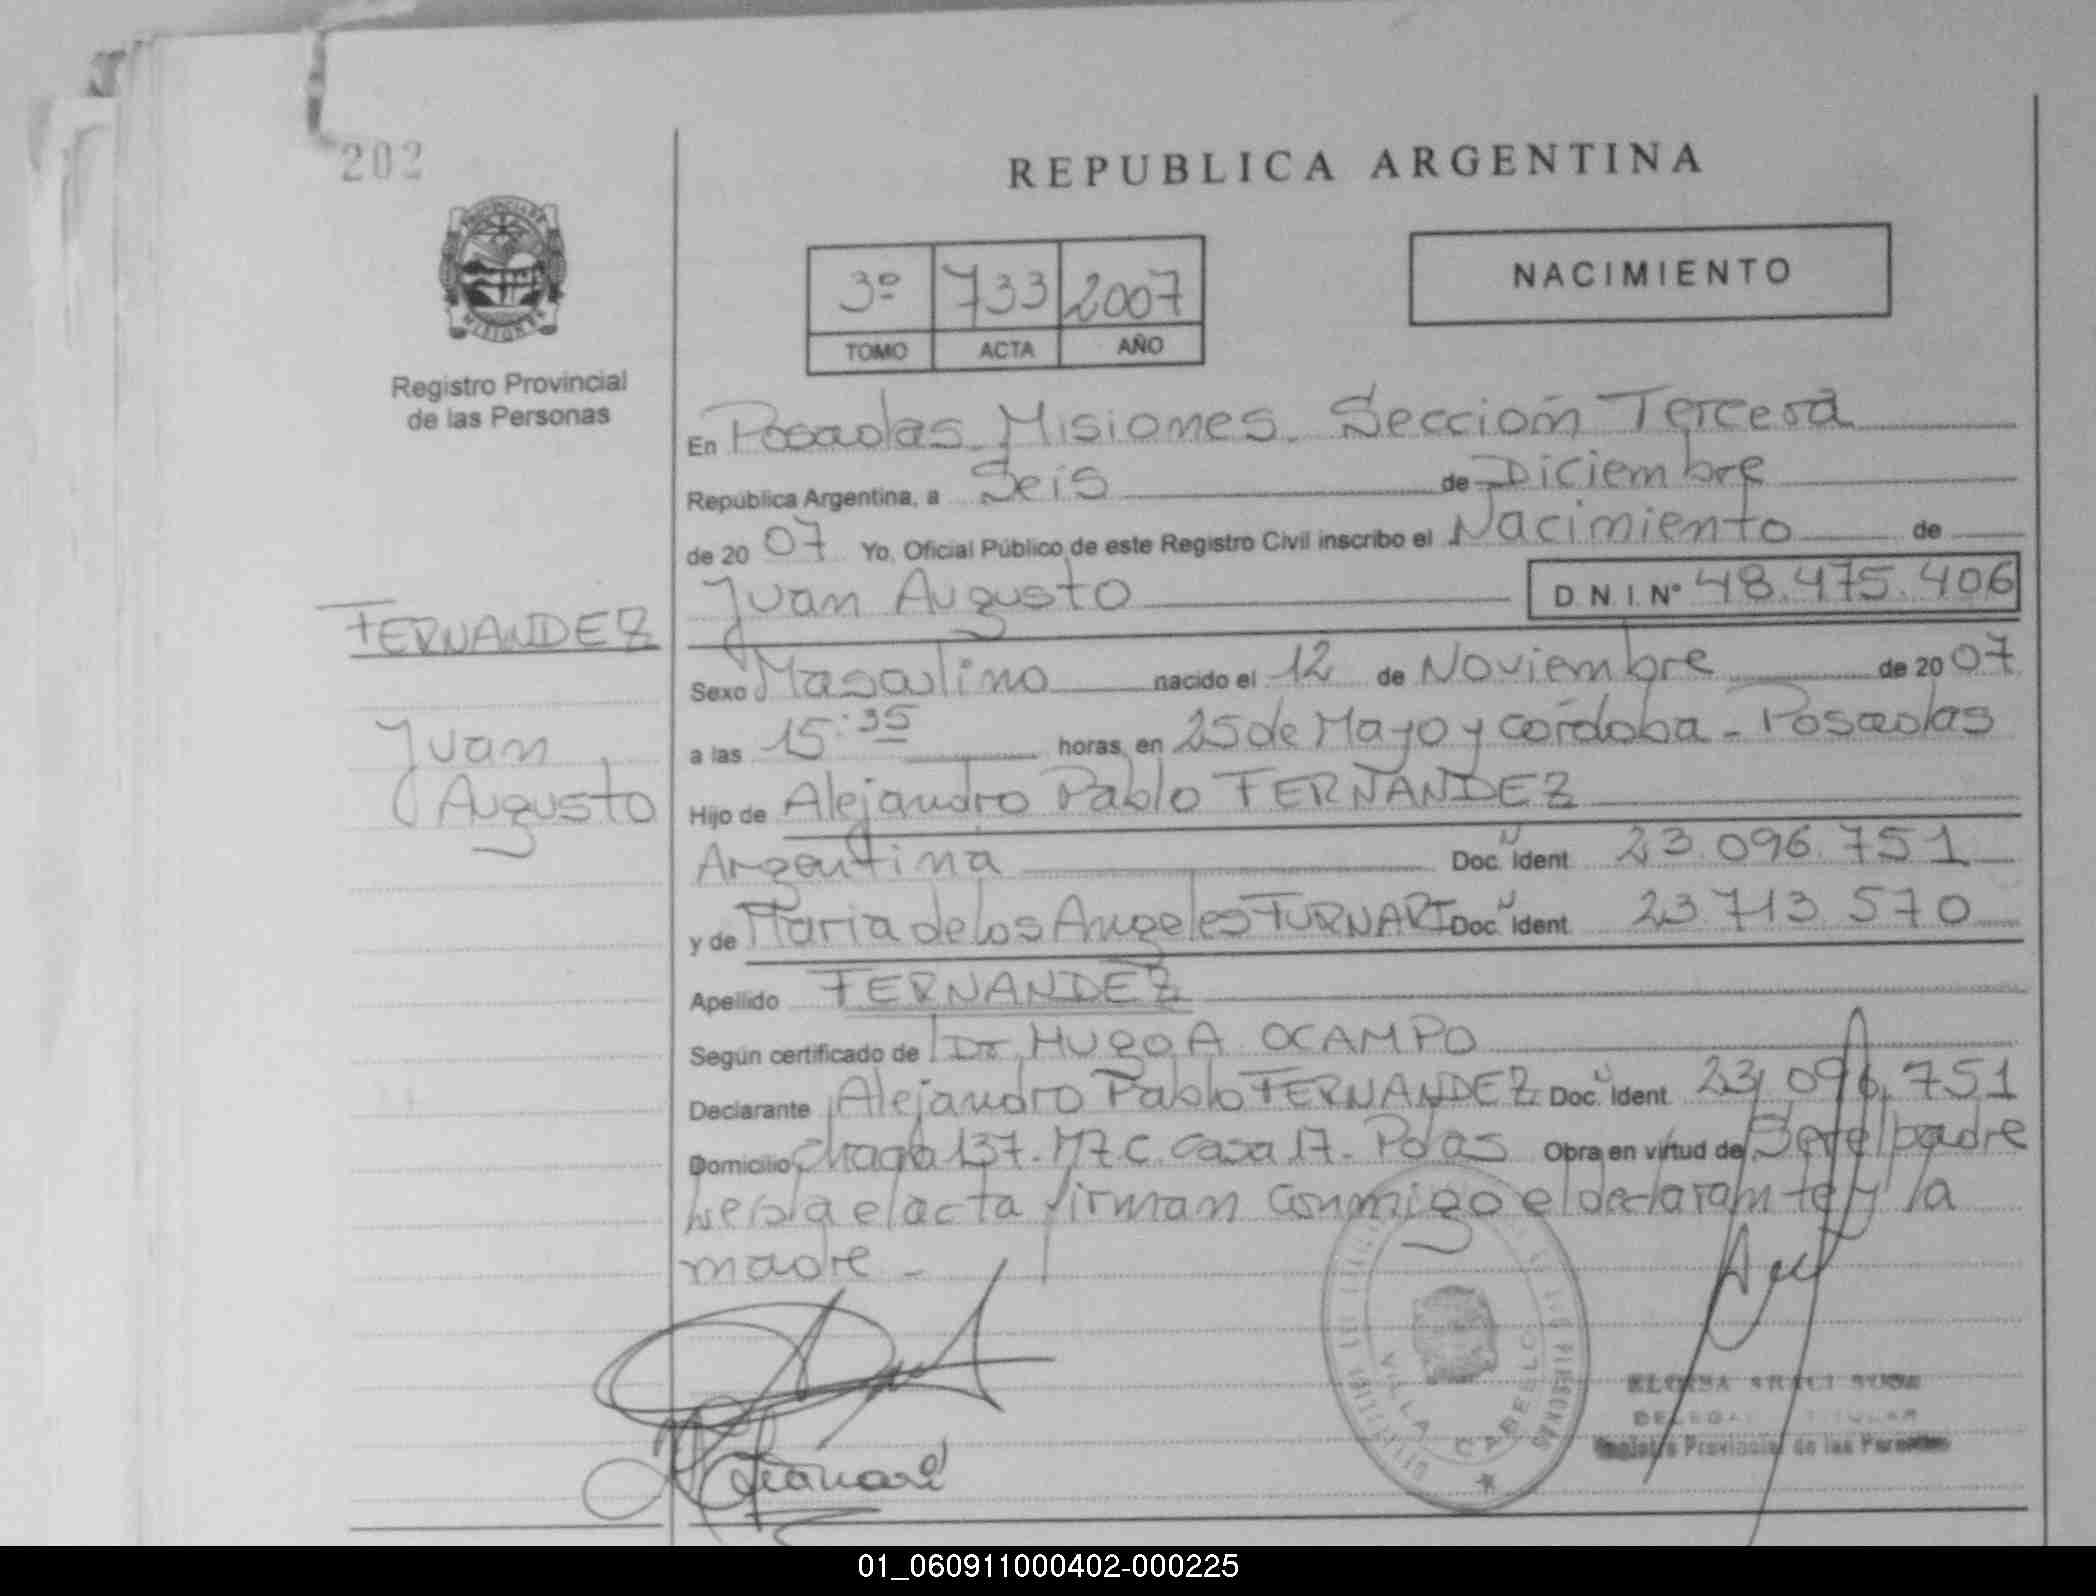 202
REPUBLICA ARGENTINA
NACIMIENTO
3º 733 2007
TOMO ACTA AÑO
Registro Provincial
de las Personas
FERNANDEZ
Juan
Augusto
En Posadas. Misiones. Sección Tercera
República Argentina, a Seis de Diciembre
de 20 07 Yo, Oficial Público de este Registro Civil inscribo el Nacimiento de
Juan Augusto D.N.I. Nº 48.475.406
Sexo Masculino nacido el 12 de Noviembre de 20 07
a las 15:35 horas, en 25 de Mayo y Córdoba - Posadas
Hijo de Alejandro Pablo FERNANDEZ
Argentina Doc. Ident. 23.096.751
y de Maria de los Angeles FURNARI Doc. Ident. 23.713.570
Apellido FERNANDEZ
Según certificado de Dr. Hugo A. OCAMPO
Declarante Alejandro Pablo FERNANDEZ Doc. Ident. 23.096.751
Domicilio Chacra 137. M7.C. casa 17. Pdas Obra en virtud de Ser el padre
Leida el acta firman conmigo el declarante y la
madre. -
VILLA CABELLO
DELEGADA TITULAR
Registro Provincial de las Personas
01_060911000402-000225